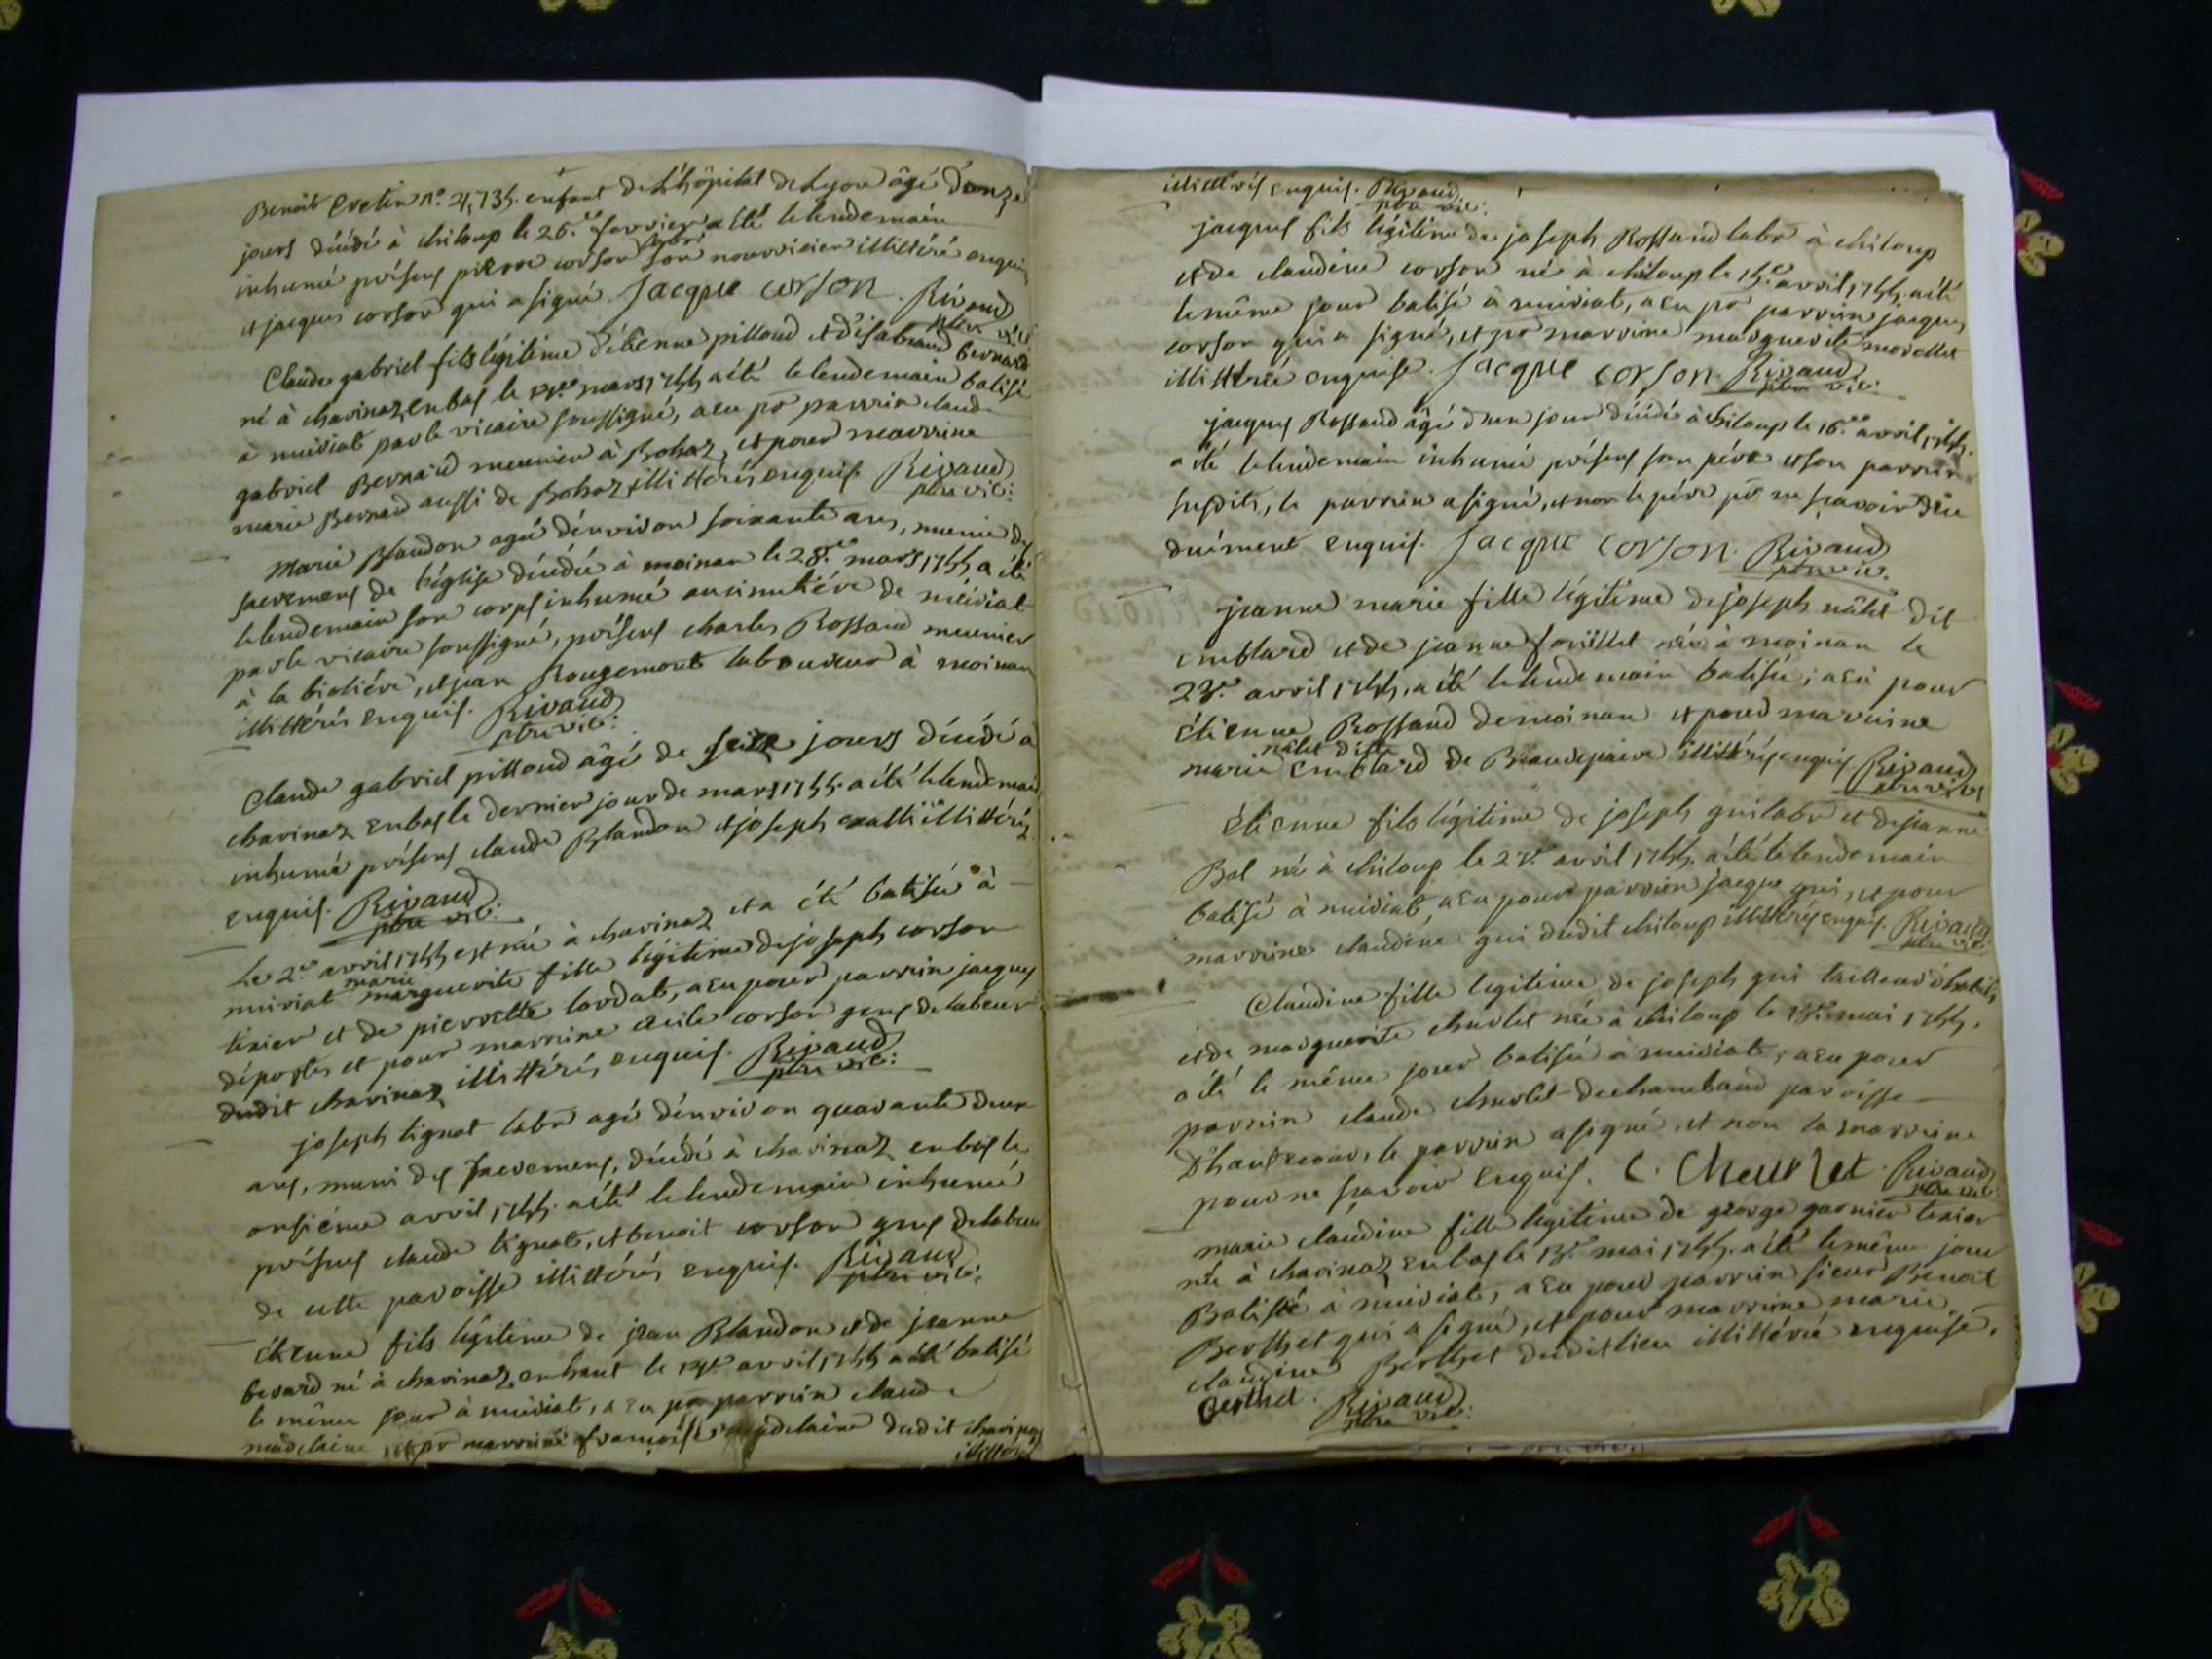 Benoit Cretin n°. 21,735. enfant de L'hôpital de Lyon âgé d'onze
jours décédé à chiloup le 26.e fevrier a été le lendemain
inhumé présens pierre corson labr son nourricier illitéré enquis
et jacques corson qui a signé. Jacque corson. Rivaud
ptre vic:
Claude gabriel fils légitime d'étienne pilloud et d'isabeau bernard
né à chavinaz en bas le mars 1755 a été le lendemain batisé
à meiriat par le vicaire soussigné, a eu pr parrin claude
gabriel Bernard meunier à Bohaz, et pour marrine
marie Bernard aussi de Bohaz illittérés enquis. Rivaud
ptre vic:
Marie Blandon agée d'environ soixante ans, munie des
sacremens de l'église décédée à moinan le 28.e mars 1755 a été
le lendemain son corps inhumé au cimetiére de meiriat
par le vicaire soussigné, présens charles Rossand meunier
à la biolière, et jean Rougemont laboureur à moinan
illittérés enquis. Rivaud
ptre vic:
Claude gabriel pilloud âgé de seize jours décédé à
chavinaz en bas le dernier jour de mars 1755. a été le lendemain
inhumé présens claude Blandon et joseph illittérés
enquis. Rivaud
ptre vic:
Le 2.e avril 1755 est née à chavinaz et a été batisée à
meiriat marie marguerite fille légitime de joseph corson
tixier et de pierrette lordat, a eu pour parrin jacques
et pour marrine cecile corson gens de labeur
dudit chavinaz illittérés enquis. Rivaud
ptre vic:
joseph tignat labr agé d'environ quarante deux
ans, muni des sacremens, décédé à chavinaz en bas le
onsiéme avril 1755. a été le lendemain inhumé
présens claude tignat, et benoit corson gens de labeur
de cette paroisse illittérés enquis. Rivaud
ptre vic:
étienne fils légitime de jean Blandon et de jeanne
bevard né à chavinaz en haut le avril 1755 a été batisé
le même jour à meiriat, a eu pr parrin claude
madelaine, et pr marrine françoise madelaine dudit chavinaz
illittérés
illittérés enquis. Rivaud
ptre vic:
jacques fils légitime de joseph Rossand labr à chiloup
et de claudine corson né à chiloup le 15.e avril 1755. a été
le même jour batisé à meiriat, a eu pr parrin jacques
corson qui a signé, et pr marrine marguerite morellet
illittérée enquise. Jacque corson. Rivaud
ptre vic:
jacques Rossand âgé d'un jour décédé à chiloup le 16.e avril 1755.
a été le lendemain inhumé présens son pére et son parrin
susdits, le parrin a signé, et non le pére pr ne sçavoir de ce
duëment enquis. Jacque corson. Rivaud
ptre vic.
jeanne marie fille légitime de joseph nâlet dit
emblard et de jeanne née à moinan le
23.e avril 1755. a été le lendemain batisée; a eû pour
étienne Rossand de moinan et pour marrine
marie nâlet dite emblard de illittérés enquis Rivaud
ptre vic:
étienne fils légitime de joseph gui labr et de jeanne
Bal né à chiloup le avril 1755. a été le lendemain
batisé à meiriat, a eu pour parrin jacque gui, et pour
marrine claudine gui dudit chiloup illittérés enquis. Rivaud
ptre vic:
Claudine fille legitime de joseph gui tailleur d'habits
et de marguerite chevrlet née à chiloup le 13.e mai 1755.
a été le même jour batisée à meiriat; a eu pour
parrin claude chevrlet de chambaud parroisse
D'hautecour, le parrin a signé, et non la marrine
pour ne sçavoir enquis. C. Cheurlet. Rivaud
ptre vic:
marie claudine fille legitime de george garnier tixier
née à chavinaz en bas le 13.e mai 1755. a été le même jour
Batisée à meiriat; a eu pour parrin sieur Benoit
Berthet qui a signé, et pour marrine marie
claudine Berthet dudit lieu illittérée enquise.
Berthet. Rivaud
ptre vic: